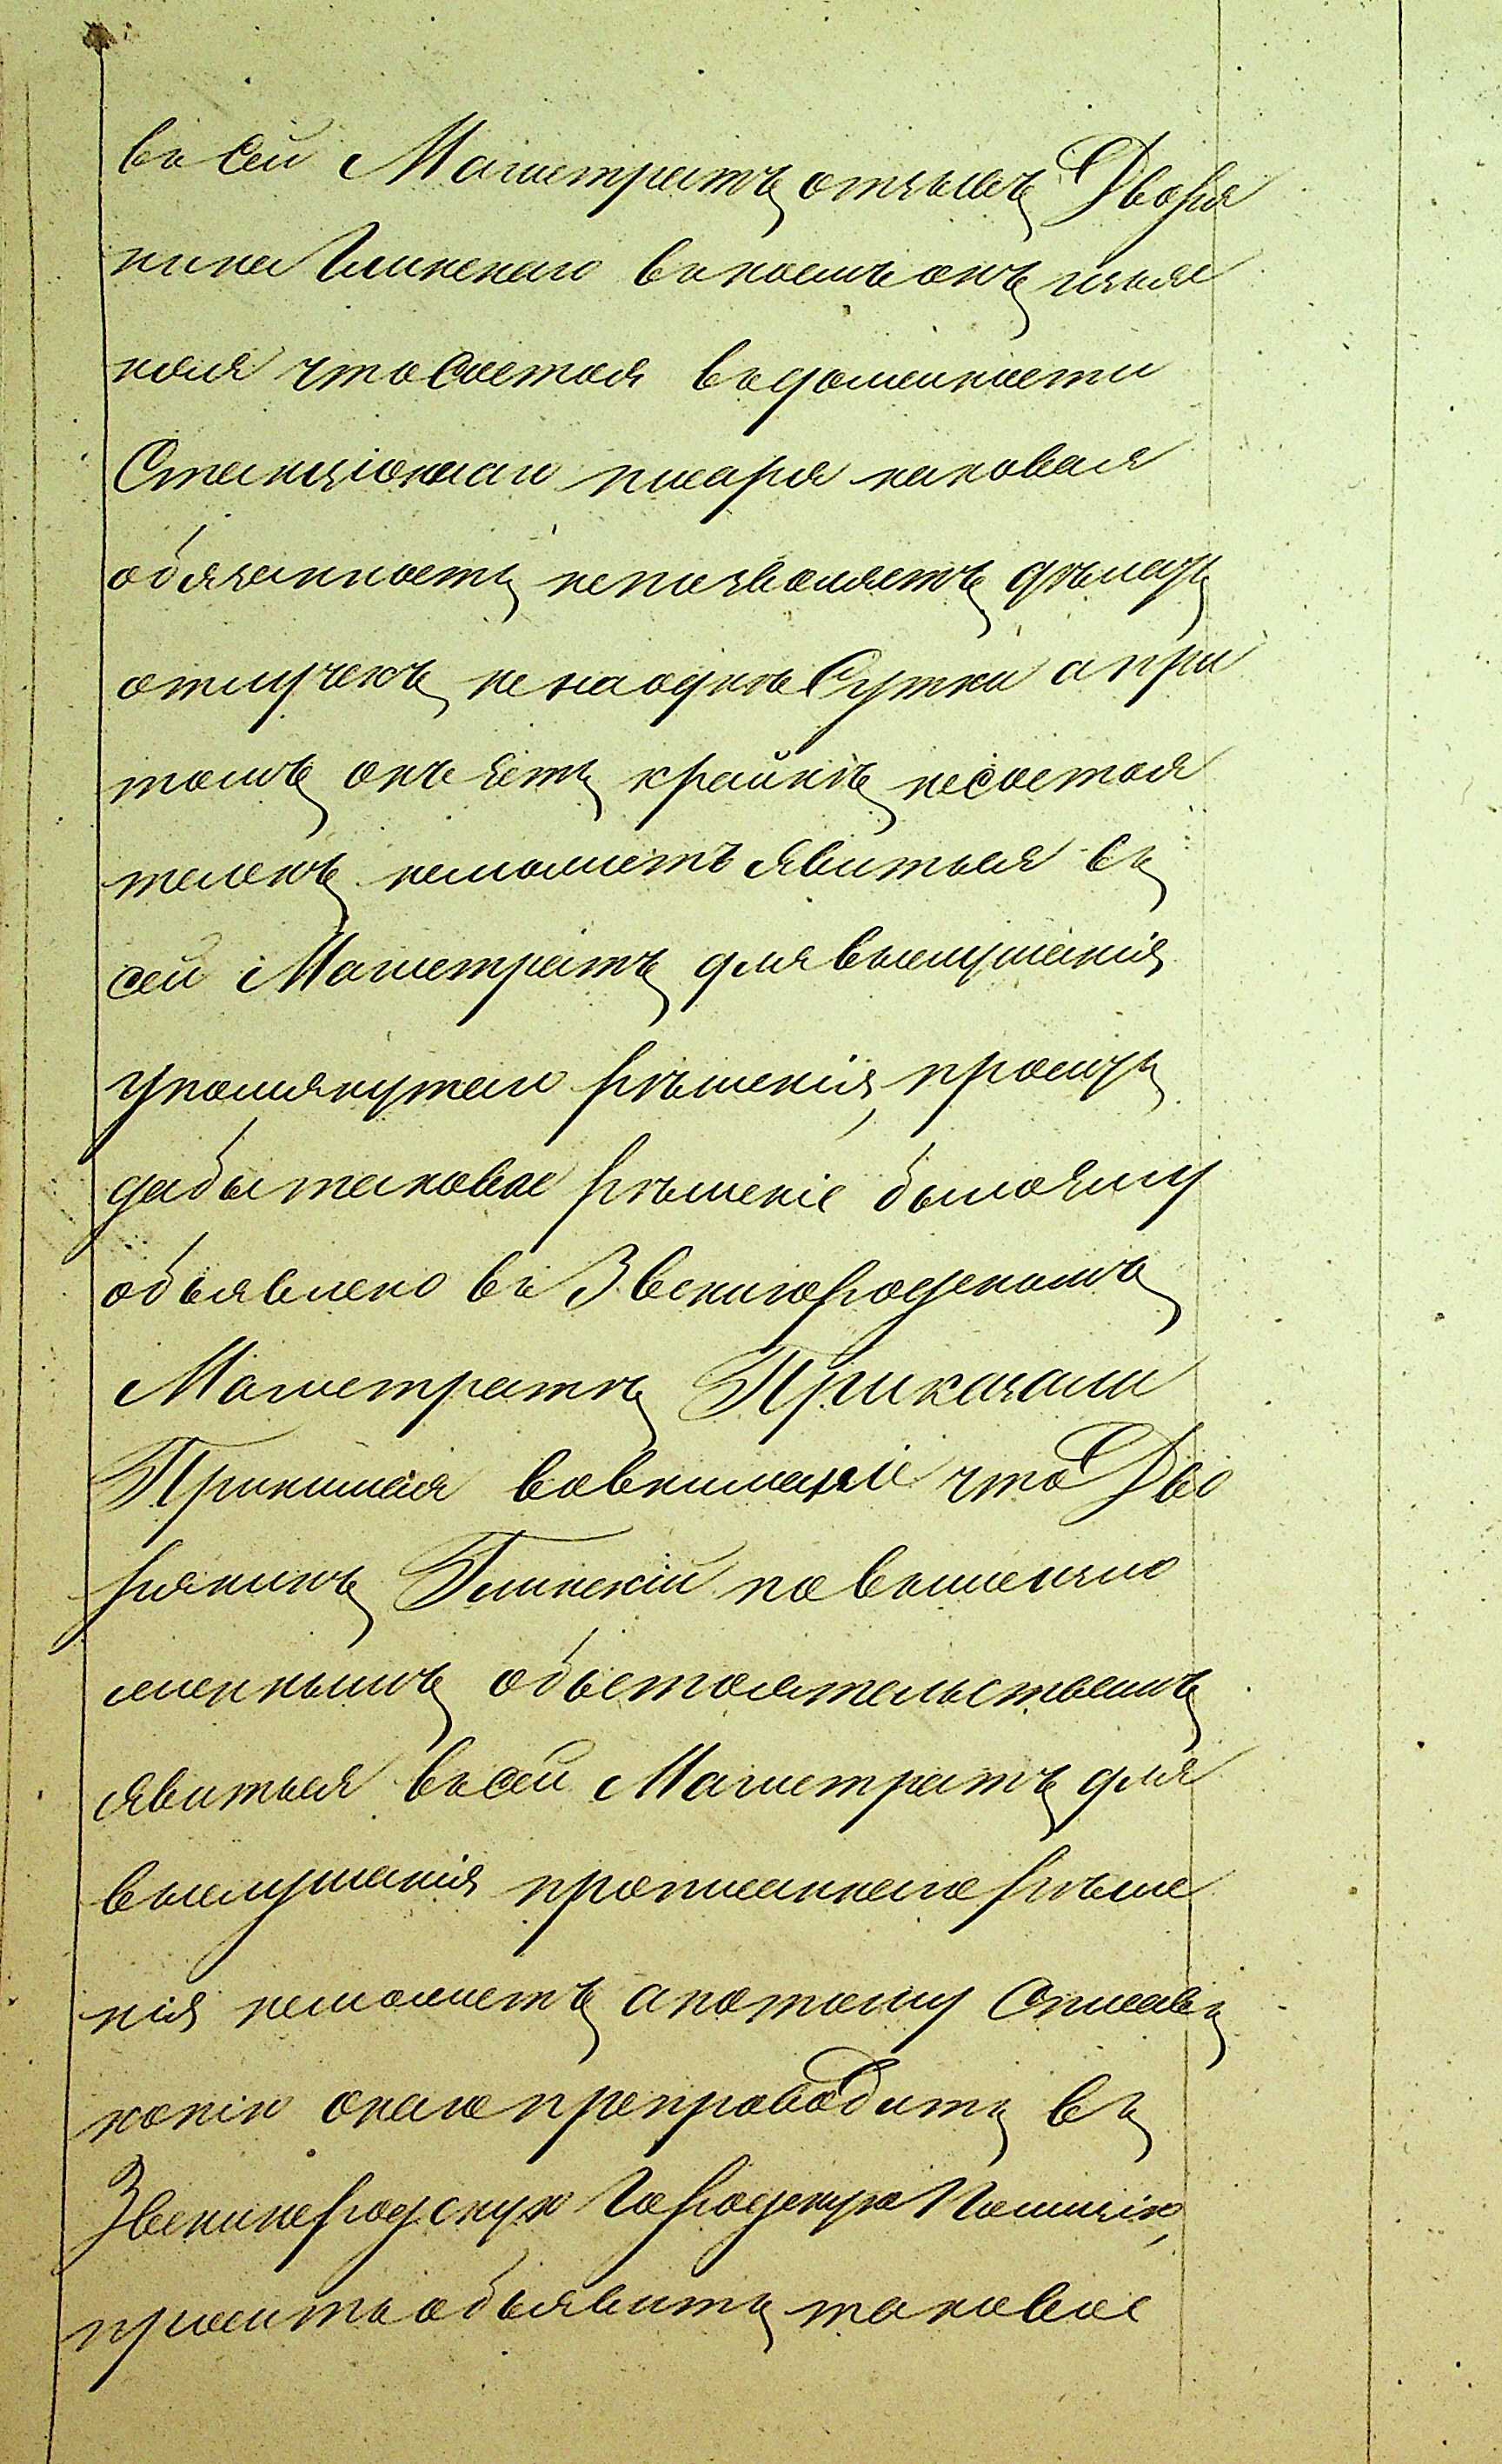 въ сей Магистратъ отзывъ Дворя
нина Глинскаго въ коемъ онъ изъяс
няя что состоя въ должности
Станціоннаго писаря каковая
обязанность непозволяетъ дѣлать
отлучекъ не на однѣ Сутки а при
томъ онъ есть крайнѣ несостоя
теленъ неможетъ явиться въ
сей Магистратъ для выслушанія
упомянутаго рѣшенія, проситъ
дабы таковое рѣшеніе было ему
объявлено въ Звенигородскомъ
Магистратѣ Приказали
Принимая во вниманіе что Дво
рянинъ Глинскій по вышеизъо
мненнымъ обьстоятельствамъ
явиться въ сей Магистратъ для
выслушанія прописаннаго рѣше
нія неможетъ а потому Списавъ
копію онаго препроводить въ
Звенигородскую Городскую Полицію,
просить объявить таковое